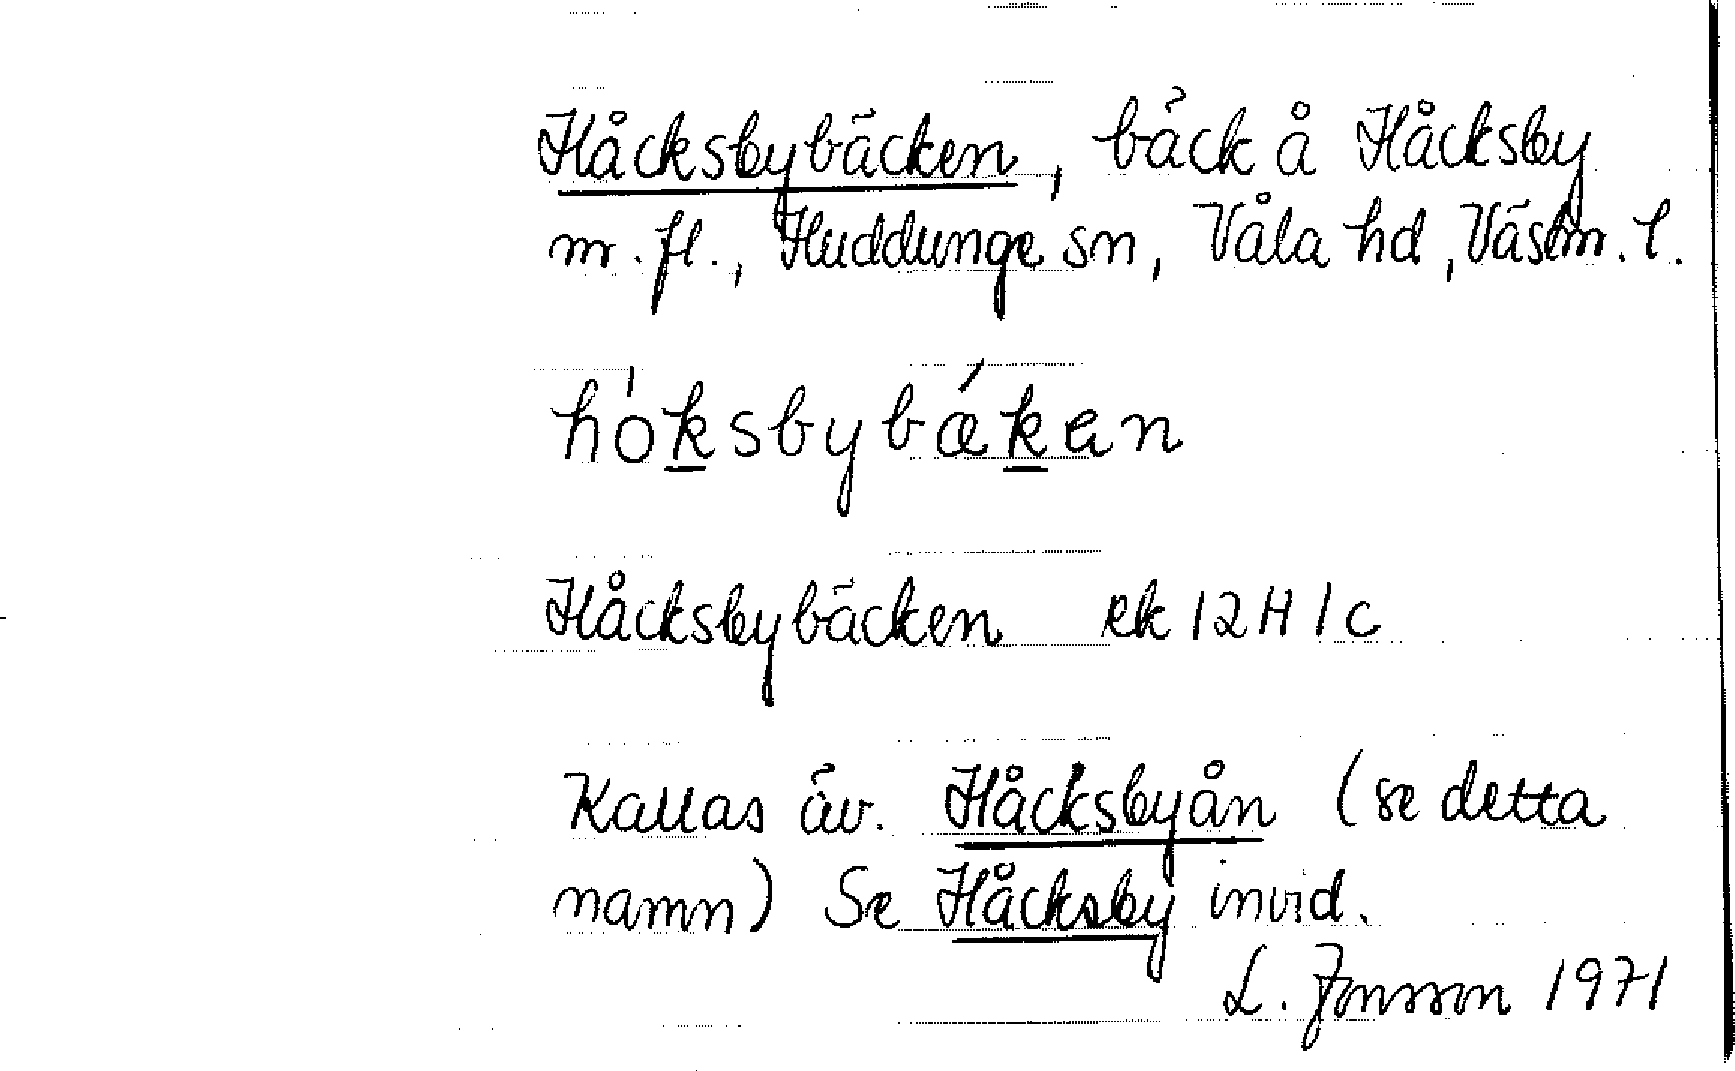 Håcksbybäcken, bäck å Håcksby
m.fl., Huddunge sn, Våla hd, Västm.l.
hóksbybǽkən
Håcksbybäcken ek 12H1c
Kallas äv. Håcksbyån (se detta
namn) Se Håcksby invid.
L. Jonsson 1971